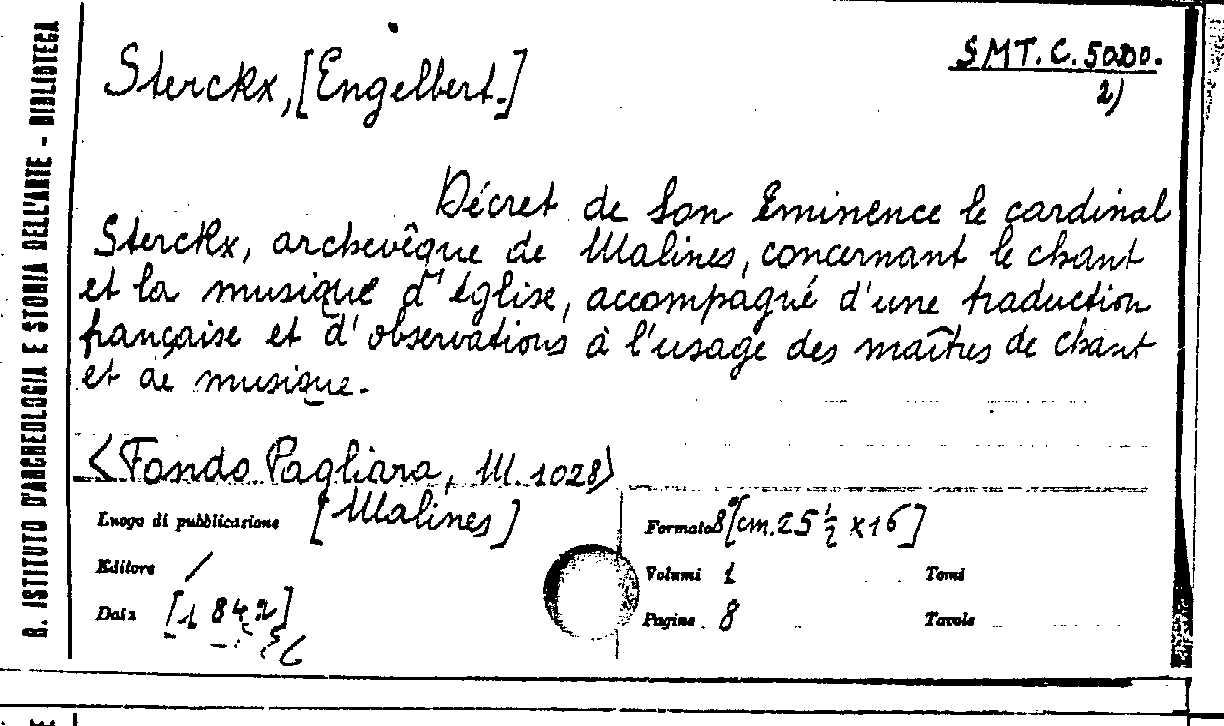 B. ISTITUTO D'ARCHEOLOGIA E STORIA DELL'ARTE - BIBLIOTECA
Sterckx, [Engelbert.]
S.M.T. C. 5000.
2)
Décret de Son Eminence le cardinal
Sterckx, archevêque de Malines, concernant le chant
et la musique d'église, accompagné d'une traduction
française et d'observations à l'usage des maîtres de chant
et de musique.-
<Fondo Pagliara, M. 1028>
Luogo di pubblicazione [Malines]
Editore /
Data [1842]
Formato 8° [cm. 25 ½ x 16]
Volumi 1 Tomi
Pagine 8 Tavole